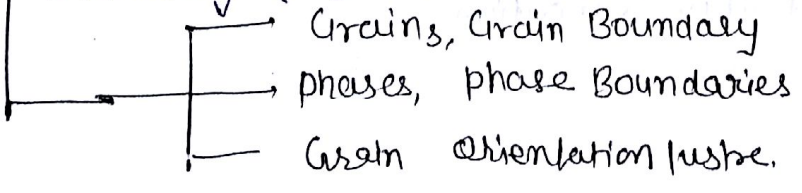 Grains, Grain Boundary
phases, phase Boundaries
Grain Orientation lustre.